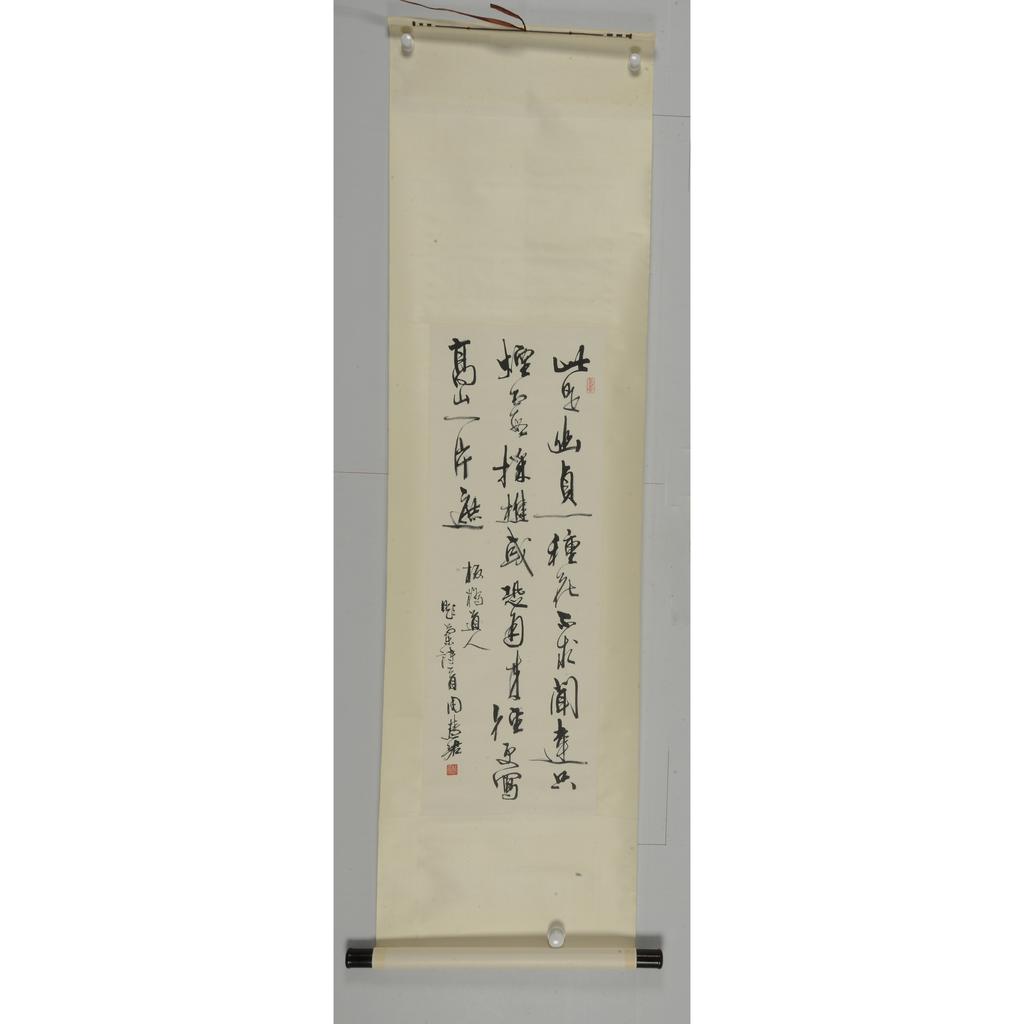 此是幽貞一種花不求聞達只
煙霞採樵或恐通來徑更寫
高山一片遮
板橋道人
題蘭詩一首周慧珺